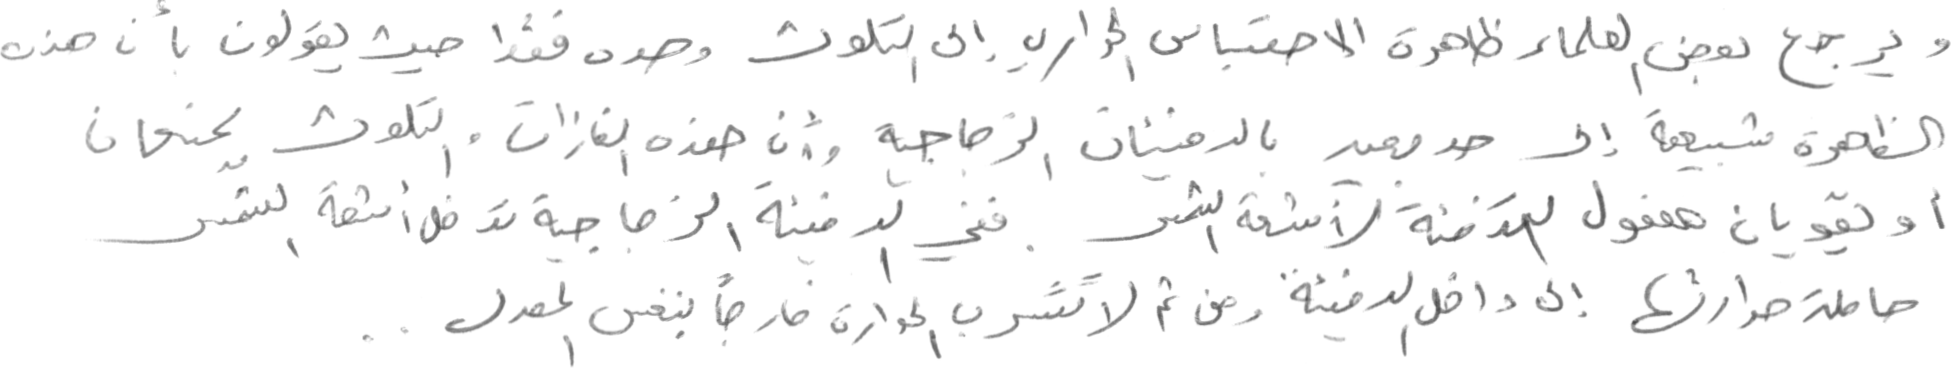 ويرجع بعض العلماء ظاهرة الاحتباس الحراري إلى التلوث وحده فقط حيث يقولون بأن هذه
الظاهرة شبيهة إلى حد بعيد بالدفيئات الزجاجية وأن هذه الغازات والتلوث يمنعان
أو يقويان مفعول التدفئة لأشعة الشمس. ففي الدفيئة الزجاجية تدخل أشعة الشمس
حاملة حرارتها إلى داخل الدفيئة ومن ثم لا تتسرب الحرارة خارجاً بنفس المعدل ..